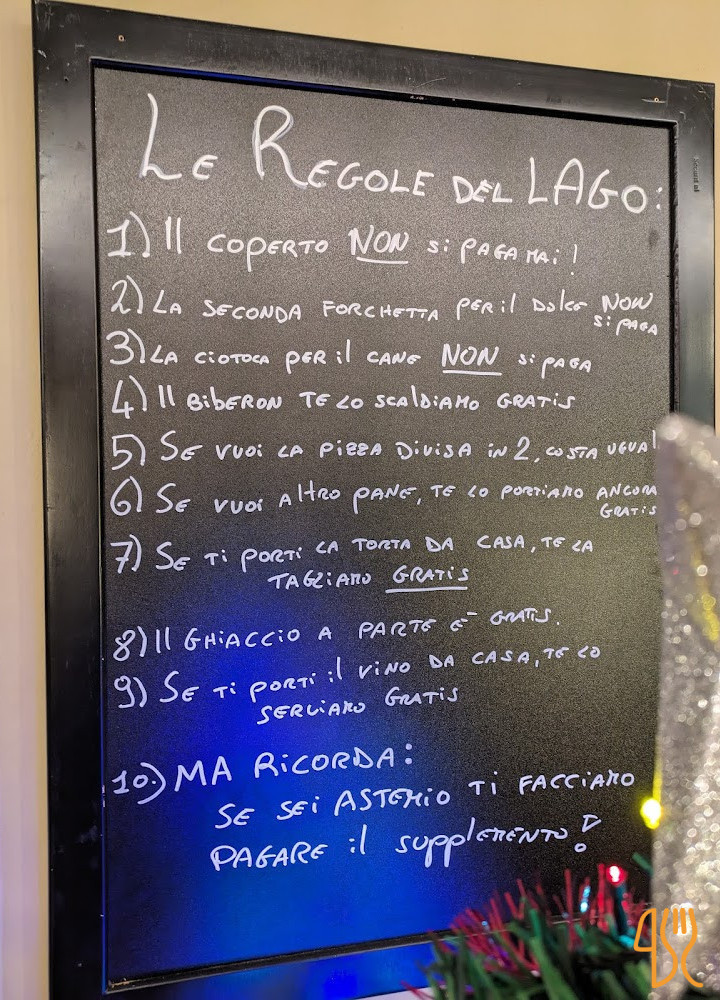 Le Regole del LAGO:
1) Il coperto NON si paga mai!
2) La seconda forchetta per il dolce NON
si paga
3) La ciotoca per il cane NON si paga
4) Il biberon te lo scaldiamo gratis
5) Se vuoi la pizza divisa in 2, costa ugual
6) Se vuoi altro pane, te lo portiamo ancora
gratis
7) Se ti porti la torta da casa, te la
tagliamo GRATIS
8) Il ghiaccio a parte è gratis.
9) Se ti porti il vino da casa, te lo
serviamo gratis
10.) MA RICORDA:
se sei ASTEMIO ti facciamo
pagare il supplemento!